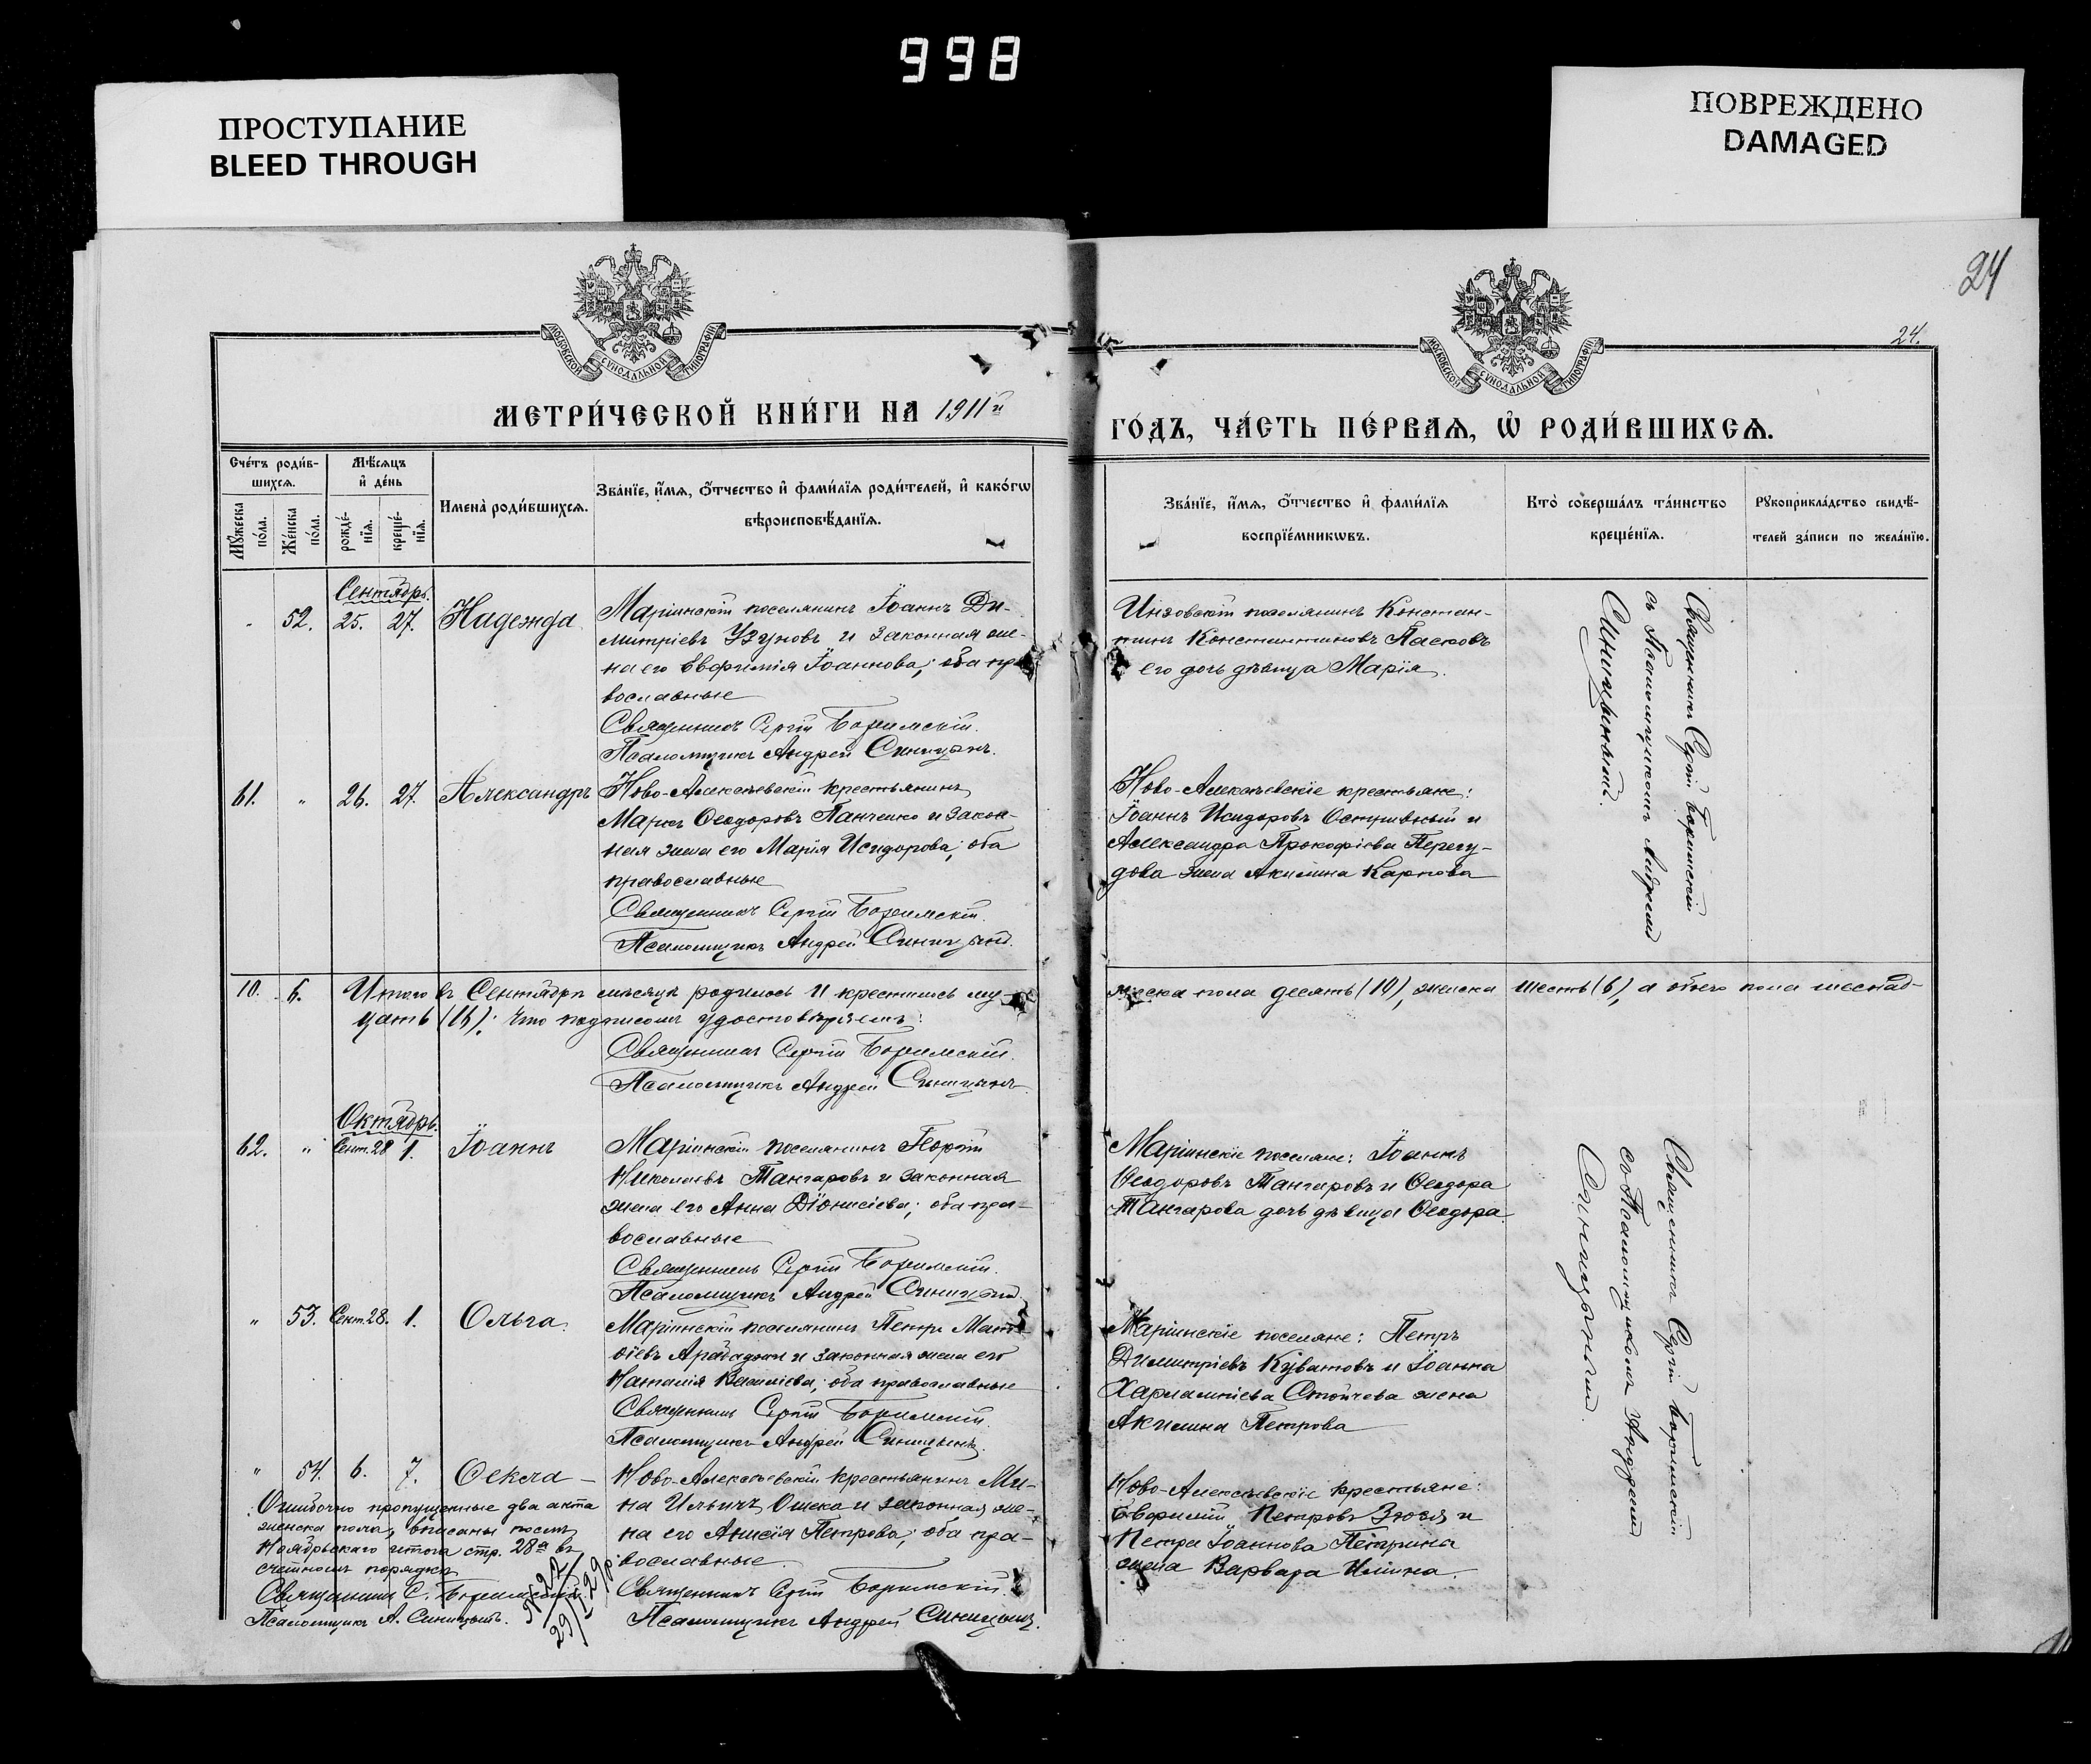 998
ПРОСТУПАНИЕ
BLEED THROUGH
ПОВРЕЖДЕНО
DAMAGED
24
24.
МОСКОВСКОЙ СѴНОДАЛЬНОЙ ТИПОГРАФІИ
МОСКОВСКОЙ СѴНОДАЛЬНОЙ ТИПОГРАФІИ
МЕТРИ́ЧЕСКОЙ КНИ́ГИ НА 1911й
ГО́ДЪ, ЧА́СТЬ ПЕ́РВАѦ, Ѡ҆ РОДИ́ВШИХСѦ.
Сче́тъ роди́в-
шихсѧ.
Мꙋ́жеска
по́ла.
Же́нска
по́ла.
Мѣ́сѧцъ
и҆ де́нь
рожде́-
нїѧ.
креще́-
нїѧ.
Имена̀ роди́вшихсѧ.
Зва́нїе, и҆́мѧ, ѻ҆́тчество и҆ фами́лїѧ роди́телей, и҆ како́гѡ
вѣроисповѣ́данїѧ.
Зва́нїе, и҆́мѧ, ѻ҆́тчество и҆ фами́лїѧ
воспрїе́мникѡвъ.
Кто̀ соверша́лъ та́инство
креще́нїѧ.
Рꙋкоприкла́дство свидѣ́-
телей за́писи по жела́нїю.
Сентябрь.
" 52. 25. 27. Надежда
Маріинскій поселянинъ Іоаннъ Ди-
митріевъ Узуновъ и законная же-
на его Евфимія Іоаннова; оба пра
вославные
Священникъ Сергій Боримскій.
Псаломщикъ Андрей Синицынъ.
Инзовскій поселянинъ Констан-
тинъ Константиновъ Пасковъ
и его дочь дѣвица Марія.
Священникъ Сергій Боримскій
съ Псаломщикомъ Андреемъ
Синицынымъ.
61. " 26. 27. Александръ
Ново-Алексѣевскій крестьянинъ
Маркъ Ѳеодоровъ Панченко и закон-
ная жена его Марія Исидорова; оба
православные
Священникъ Сергій Боримскій.
Псаломщикъ Андрей Синицынъ.
Ново-Алексѣевскіе крестьяне:
Іоаннъ Исидоровъ Остривный и
Александра Прокофіева Перегу-
дова жена Акилина Карпова
10. 6. Итого въ Сентябрѣ мѣсяцѣ родилось и крестились му-
жеска пола десять (10), женска шесть (6), а обоего пола шестнад-
цать (16); что подписомъ удостовѣряемъ:
Священникъ Сергій Боримскій.
Псаломщикъ Андрей Синицынъ
Октябрь.
62. " Сент. 28 1. Іоаннъ
Маріинскій поселянинъ Георгій
Николаевъ Тангаровъ и законная
жена его Анна Діонисіева; оба пра-
вославные
Священникъ Сергій Боримскій.
Псаломщикъ Андрей Синицынъ.
Маріинскіе поселяне: Іоаннъ
Ѳеодоровъ Тангаровъ и Ѳеодора
Тангарова дочь дѣвица Ѳеодора.
Священникъ Сергій Боримскій
съ Псаломщикомъ Андреемъ
Синицынымъ.
" 53. Сент. 28. 1. Ольга.
Маріинскій поселянинъ Петръ Мат-
ѳіевъ Арабаджи и законная жена его
Наталія Василіева; оба православные
Священникъ Сергій Боримскій.
Псаломщикъ Андрей Синицынъ.
Маріинскіе поселяне: Петръ
Димитріевъ Куватовъ и Іоанна
Харлампіева Стойчева жена
Акилина Петрова
" 54. 6. 7. Ѳекла
Ново-Алексѣевскій крестьянинъ Ми-
на Ильичъ Ошека и законная же-
на его Анисія Петрова; оба пра-
вославные.
Священникъ Сергій Боримскій.
Псаломщикъ Андрей Синицынъ.
Ново-Алексѣевскіе крестьяне:
Евфимій Петровъ Зюзя и
Петра Іоаннова Петрина
жена Варвара Ильина.
Ошибочно пропущенные два акта
женска пола, вписаны послѣ
Ноябрьскаго итога стр. 28а въ
счетномъ порядкѣ
Священникъ С. Боримскій.
Псаломщикъ А. Синицынъ.
№ 22